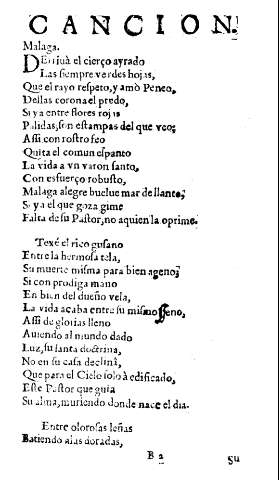 CANCION.
Malaga.
DErriuà el cierço ayrado
Las siempre verdes hojas,
Que el rayo respeto, y amò Peneo,
Dellas corona el predo,
Si ya entre flores rojas
Palidas, son estampas del que veo;
Assi con rostro feo
Quita el comun espanto
La vida a vn varon santo,
Con esfuerço robusto,
Malaga alegre buelue mar de llanto;
Si ya el que goza gime
Falta de su Pastor, no aquien la oprime.
Texé el rico gusano
Entre la hermosa tela,
Su muerte misma para bien ageno;
Si con prodiga mano
En bien del dueño vela,
La vida acaba entre su mismo seno,
Assi de glorias lleno
Auiendo al mundo dado
Luz, su santa doctrina,
No en su casa declina,
Que para el Cielo solo à edificado,
Este Pastor que guia
Su alma, muriendo donde nace el dia.
Entre olorosas leñas
Batiendo alas doradas,
B 2
Su